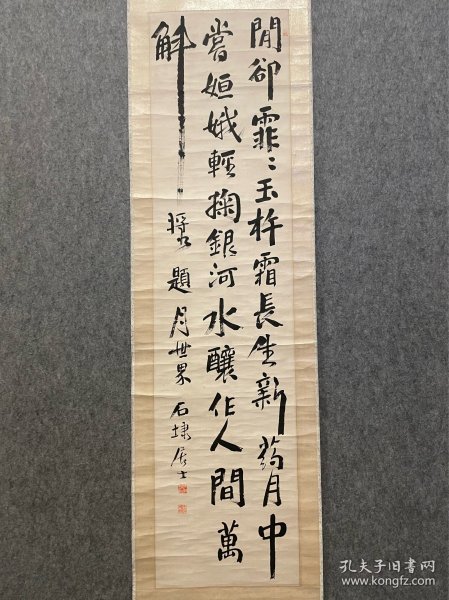 閒卻霏〻玉杵霜長生新葯月中
嘗姮娥輕掬銀河水釀作人間萬
斛漿 題月世界 石埭居士
孔夫子旧书网
www.kongfz.com